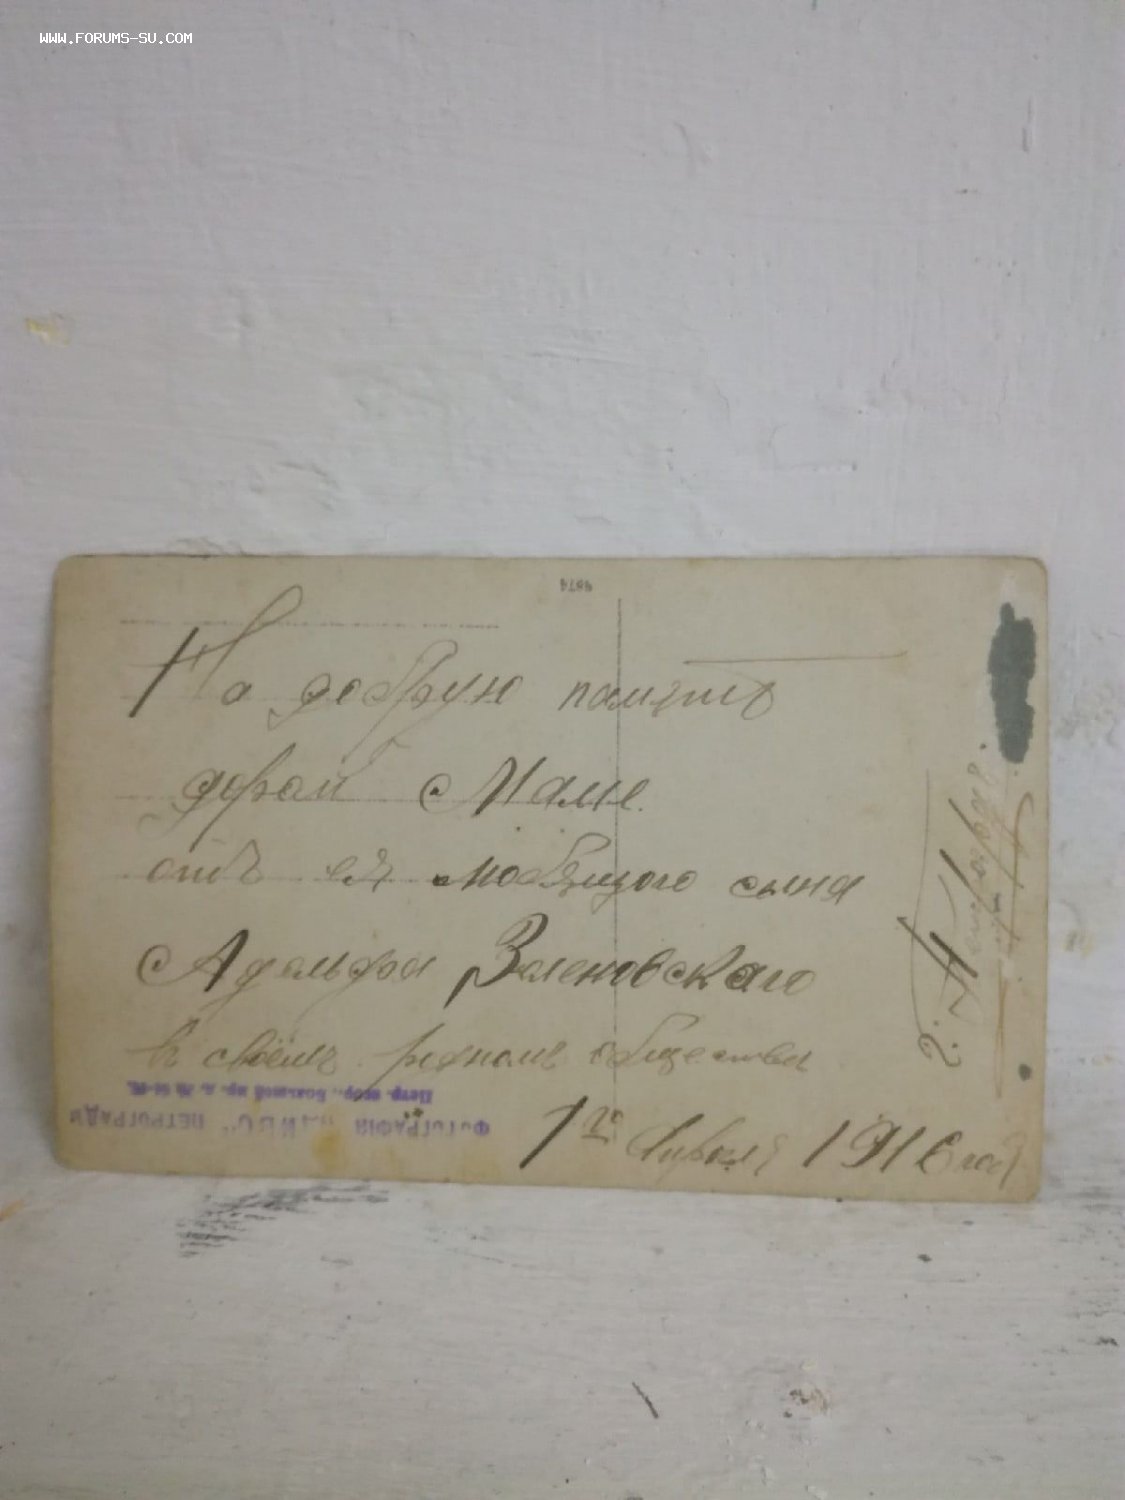 WWW.FORUMS-SU.COM
4874
На добрую память
дорогой Маме
отъ ея любящаго сына
Адольфа Зеленовскаго
въ своёмъ родномъ обществѣ
1го Апреля 1916 года
г. Петроградъ.
ФОТОГРАФІЯ ПЕТРОГРАДЪ
Петр. стор., Большой пр. д. №